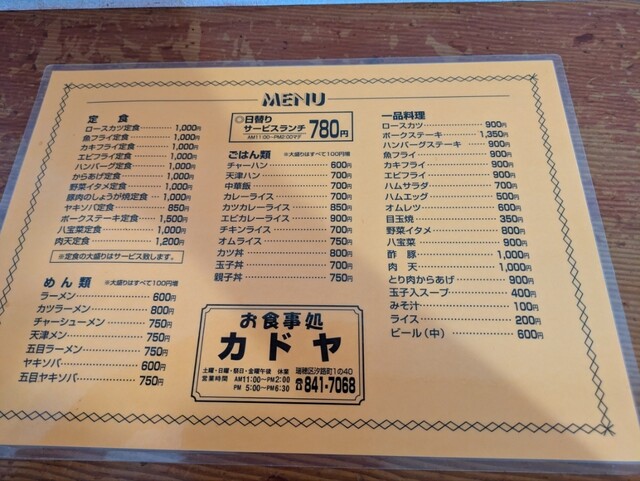 MENU
定食
ロースカツ定食 1,000円
魚フライ定食 1,000円
カキフライ定食 1,000円
エビフライ定食 1,000円
ハンバーグ定食 1,000円
からあげ定食 1,000円
野菜イタメ定食 1,000円
豚肉のしょうが焼定食 1,000円
ヤキソバ定食 850円
ポークステーキ定食 1,500円
八宝菜定食 1,000円
肉天定食 1,200円
※定食の大盛りはサービス致します。
めん類 ※大盛りはすべて100円増
ラーメン 600円
カツラーメン 800円
チャーシューメン 750円
天津メン 750円
五目ラーメン 750円
ヤキソバ 600円
五目ヤキソバ 750円
◎日替り
サービスランチ 780円
AM11:00〜PM2:00マデ
ごはん類 ※大盛りはすべて100円増
チャーハン 600円
天津ハン 700円
中華飯 700円
カレーライス 700円
カツカレーライス 850円
エビカレーライス 900円
チキンライス 700円
オムライス 750円
カツ丼 800円
玉子丼 700円
親子丼 750円
お食事処
カドヤ
土曜・日曜・祭日・金曜午後 休業
営業時間 AM11:00〜PM2:00
PM 5:00〜PM6:30
瑞穂区汐路町1の40
☎841-7068
一品料理
ロースカツ 900円
ポークステーキ 1,350円
ハンバーグステーキ 900円
魚フライ 900円
カキフライ 900円
エビフライ 900円
ハムサラダ 700円
ハムエッグ 500円
オムレツ 600円
目玉焼 350円
野菜イタメ 800円
八宝菜 900円
酢豚 1,000円
肉天 1,000円
とり肉からあげ 900円
玉子入スープ 400円
みそ汁 100円
ライス 200円
ビール(中) 600円